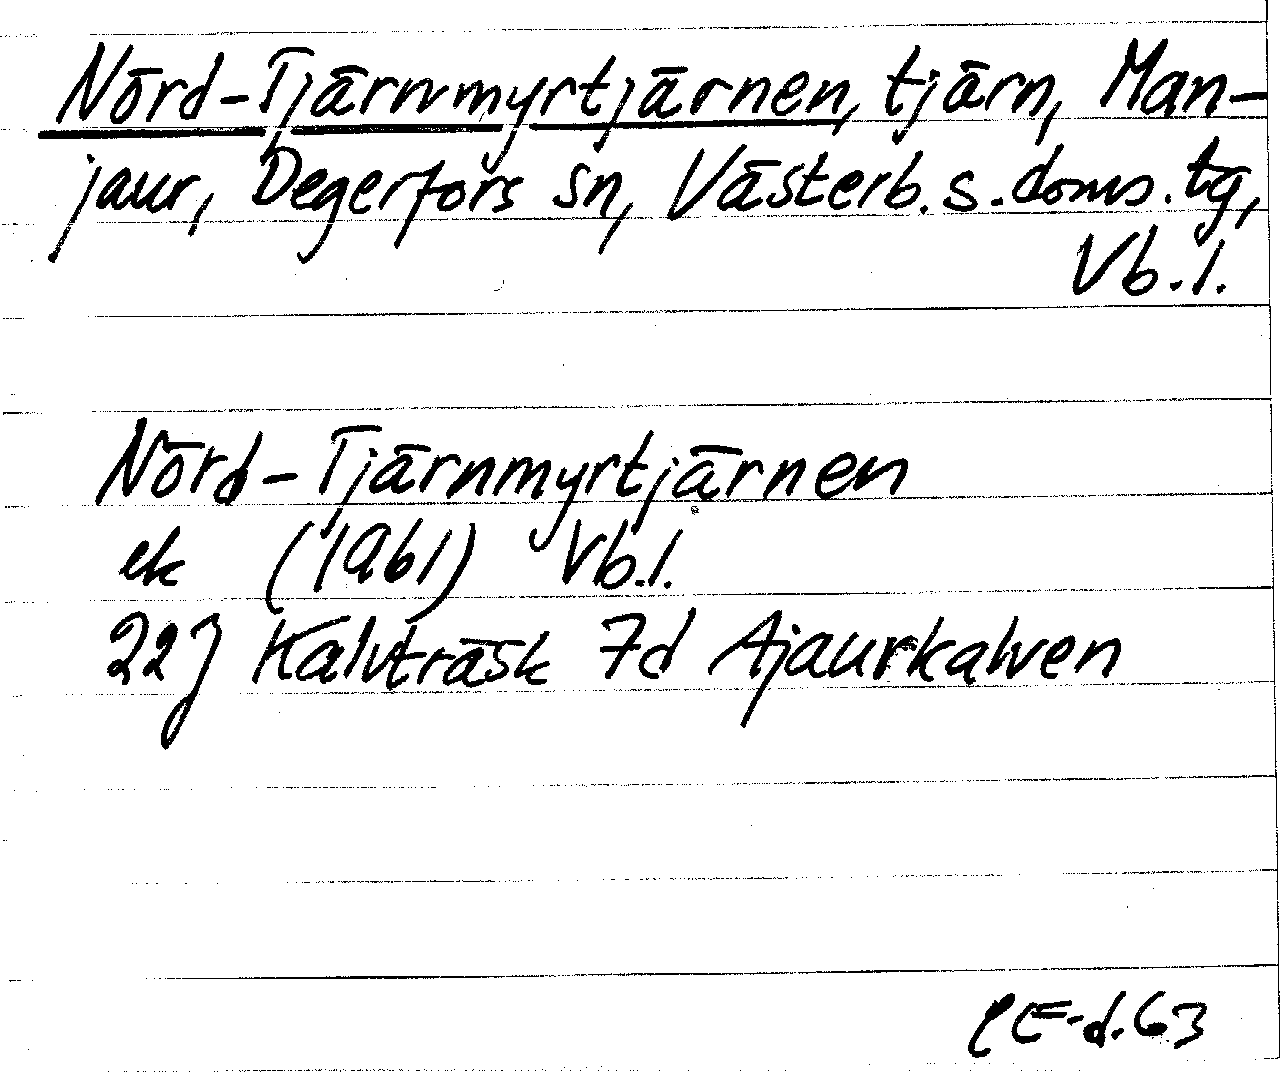 Nörd-Tjärnmyrtjärnen, tjärn, Man-
jaur, Degerfors sn, Västerb. s. doms. tg,
Vb. l.
Nörd-Tjärnmyrtjärnen
ek (1961) Vb. l.
22J Kalvträsk 7d Ajaurkalven